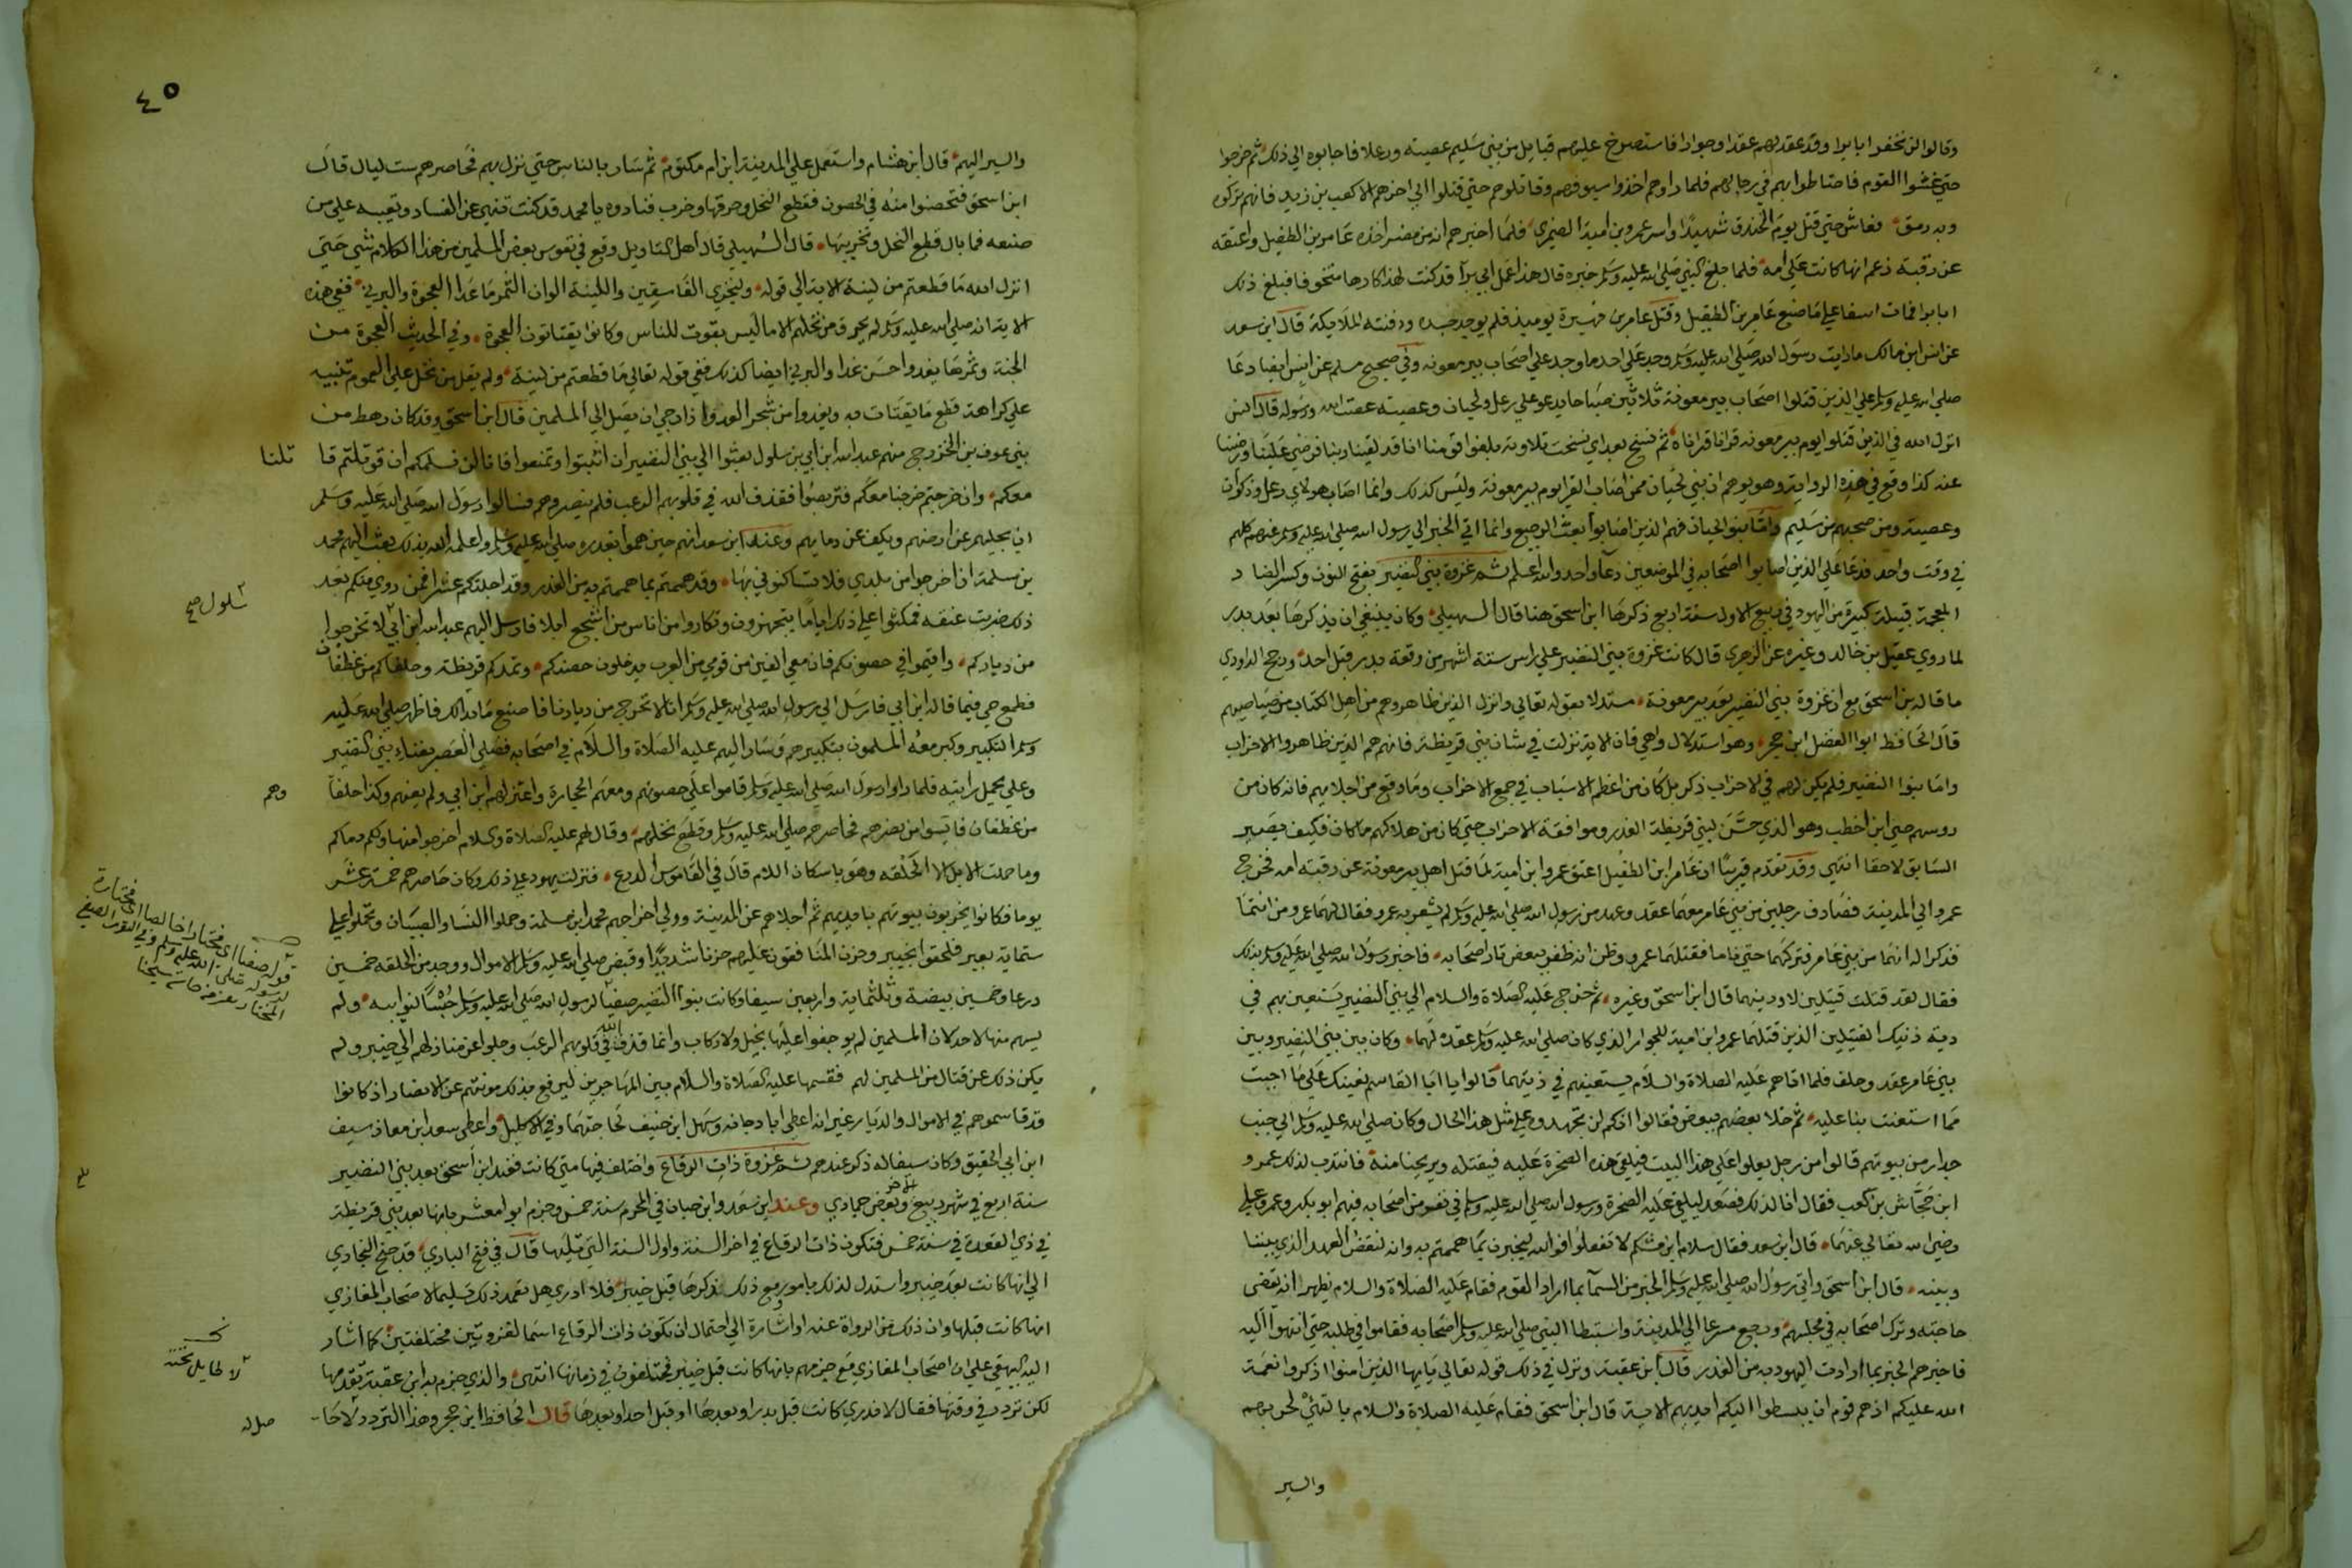 وقالوا لن نخفر ابا برا وقد عقد لهم عقدا وجوارا فاستصرخ عليهم قبايل من بني سليم عصيته ورعلا فاجابوه الي ذلك ثم خرجوا
حتي غشوا القوم فاحتاطوا بهم في رحالهم فلما راوهم اخذوا سيوفهم وقاتلوهم حتي قتلوا الي اخرهم الا كعب بن زيد فانهم تركوه
وبه رمق فعاش حتي قتل يوم الخندق شهيدا واسر عمرو بن امية الضمري فلما اخبرهم انه من مضر اخذه عامر بن الطفيل واعتقه
عن رقبة زعم انها كانت علي امه فلما بلغ النبي صلي الله عليه وسلم خبره قال هذا عمل ابي برآ قد كنت لهذا كارها متخوفا فبلغ ذلك
ابا برا فمات اسفا علي ما صنع عامر بن الطفيل وقتل عامر بن فهيرة يوميذ فلم يوجد جسده ودفنته الملايكة قال ابن سعد
عن انس ابن مالك ما رايت رسول الله صلي الله عليه وسلم وجد علي احد ما وجد علي اصحاب بير معونه وفي صحيح مسلم عن انس ايضا دعا
صلي الله عليه وسلم علي الذين قتلوا اصحاب بير معونة ثلاثين صباحا يدعو علي رعل ولحيان وعصيته عصت الله ورسوله قال انس
انزل الله في الذين قتلوا يوم بير معونه قرانا قراناه ثم نسخ بعد اي نسخت تلاوته بلغوا قومنا انا قد لقينا ربنا فرضي علينا ورضينا
عنه كذا وقع في هذه الرواية وهو يوهم ان بني لحيان ممن اصاب القرا يوم بير معونة وليس كذلك وانما اصاب هولاي رعل وذكوان
وعصيته ومن صحبهم من سليم واما بنو لحيان فهم الذين اصابوا بعث الرجيع وانما اتي الخبر الي رسول الله صلي الله عليه وسلم عنهم كلهم
في وقت واحد فدعا علي الذين اصابوا اصحابه في الموضعين دعآ واحدا والله اعلم ثم غزوة بني النضير بفتح النون وكسر الضاد
المعجمة قبيلة كبيرة من اليهود في ربيع الاول سنة اربع ذكرها ابن اسحق هنا قال السهيلي وكان ينبغي ان يذكرها بعد بدر
لما روي عقيل بن خالد وغيره عن الزهري قال كانت غزوة بني النضير علي راس ستة اشهر من وقعة بدر قبل احد ورجح الداودي
ما قاله بن اسحق مع ان غزوة بني النضير بعد بير معونة مستدلا بقوله تعالي وانزل الذين ظاهروهم من اهل الكتاب من صياصيهم
قال الحافظ ابوا الفضل ابن حجر وهو استدلال واهي فان الاية نزلت في شان بني قريظة فانهم هم الذين ظاهروا الاحزاب
واما بنوا النضير فلم يكن لهم في الاحزاب ذكر بل كان من اعظم الاسباب في جمع الاحزاب وما وقع من اجلايهم فانه كان من
روسهم حيي ابن اخطب وهو الذي حسن لبني قريظة الغدر وموافقة الاحزاب حتي كان من هلاكهم ما كان فكيف يصير
السابق لاحقا انتهي وقد تقدم قريبا ان عامر ابن الطفيل اعتق عمرو ابن امية لما قتل اهل بير معونة عن رقبة امه فخرج
عمرو الي المدينة فصادف رجلين من بني عامر معهما عقد وعهد من رسول الله صلي الله عليه وسلم لم يشعر به عمرو فقال لهما عمرو من انتما
فذكرا له انهما من بني عامر فتركهما حتي ناما فقتلهما عمرو وظن انه ظفر ببعض ثار اصحابه فاخبر رسول الله صلي الله عليه وسلم بذلك
فقال لقد قتلت قتيلين لاودينهما قال ابن اسحق وغيره ثم خرج عليه الصلاة والسلام الي بني النضير يستعين بهم في
دية ذنيك القتيلين الذين قتلهما عمرو ابن امية للجوار الذي كان صلي الله عليه وسلم عقده لهما وكان بين بني النضير وبين
بني عامر عقد وحلف فلما اتاهم عليه الصلاة والسلام يستعينهم في ديتهما قالوا يا ابا القاسم نعينك علي ما احببت
مما استعنت بنا عليه ثم خلا بعضهم ببعض فقالوا انكم لن تجدوه علي مثل هذا الحال وكان صلي الله عليه وسلم الي جنب
جدار من بيوتهم قالوا من رجل يعلوا علي هذا البيت فيلقي هذه الصخرة عليه فيقتله ويريحنا منه فانتدب لذلك عمرو
ابن جحاش بن كعب فقال انا لذلك فصعد ليلقي عليه الصخرة ورسول الله صلي الله عليه وسلم في نفر من اصحابه فيهم ابو بكر وعمر وعلي
رضي الله تعالي عنهما قال ابن سعد فقال سلام ابن مشكم لا تفعلوا فوالله ليخبرن بما هممتم به وانه لنقض العهد الذي بيننا
وبينه قال ابن اسحق واتي رسول الله صلي الله عليه وسلم الخبر من السمآ بما اراد القوم فقام عليه الصلاة والسلام يظهر انه يقضي
حاجته وترك اصحابه في مجلسهم ورجع مسرعا الي المدينة واستبطا النبي صلي الله عليه وسلم اصحابه فقاموا في طلبه حتي انتهوا اليه
فاخبرهم الخبر بما ارادت اليهود به من الغدر قال ابن عقبة ونزل في ذلك قوله تعالي يايها الذين امنوا اذكروا نعمة
الله عليكم اذ هم قوم ان يبسطوا اليكم ايديهم الاية قال ابن اسحق فقام عليه الصلاة والسلام بالتهئ لحربهم
والسير
٤٥
والسير اليهم قال ابن هشام واستعمل علي المدينة ابن ام مكتوم ثم سار بالناس حتي نزل بهم فحاصرهم ست ليال قال
ابن اسحق فتحصنوا منه في الحصون فقطع النخل وحرقها وخرب فنادوه يا محمد قد كنت تنهي عن الفساد وتعيبه علي من
صنعه فما بال قطع النخل وتخريبها قال السهيلي قال اهل التاويل وقع في نفوس بعض المسلمين من هذا الكلام شي حتي
انزل الله ما قطعتم من لينة الاية الي قوله وليخزي الفاسقين واللينة الوان التمر ما عدا العجوة والبرني ففي هذه
الاية انه صلي الله عليه وسلم لم يحرق من نخلهم الا ما ليس بقوت للناس وكانوا يقتاتون العجوة وفي الحديث العجوة من
الجنة وثمرها يغدوا احسن غدا والبرني ايضا كذلك ففي قوله تعالي ما قطعتم من لينة ولم يقل من نخل علي العموم تنبيه
علي كراهة قطع ما يقتات به ويغدوا من شجر العدو اذا رجي ان يصل الي المسلمين قال ابن اسحق وقد كان رهط من
بني عوف بن الخزرج منهم عبد الله ابن ابي بن سلول بعثوا الي بني النضير ان اثبتوا وتمنعوا فانا لن نسلمكم ان قوتلتم قا تلنا
معكم وان خرجتم خرجنا معكم فتربصوا فقذف الله في قلوبهم الرعب فلم ينصروهم فسالوا رسول الله صلي الله عليه وسلم
ان يجليهم عن ارضهم ويكف عن دمايهم وعند ابن سعد انهم حين هموا بغدره صلي الله عليه وسلم واعلمه الله بذلك بعث اليهم محمد
بن مسلمة ان اخرجوا من بلدي فلا تساكنوني بها وقد هممتم بما هممتم به من الغدر وقد اجلتكم عشرا فمن روي منكم بعد
ذلك ضربت عنقه فمكثوا علي ذلك اياما يتجهزون وتكاروا من اناس من اشجع ابلا فارسل اليهم عبد الله ابن ابي لا تخرجوا
سلول صح
من دياركم واقيموا في حصونكم فان معي الفين من قومي من العرب يدخلون حصنكم وتمدكم قريظة وحلفاكم من غطفان
فطمع حيي فيما قاله ابن ابي فارسل الي رسول الله صلي الله عليه وسلم انا لا نخرج من ديارنا فاصنع ما بدالك فاظهر صلي الله عليه
وسلم التكبير وكبر معه المسلمون بتكبيرهم وسار اليهم عليه الصلاة والسلام في اصحابه فصلي العصر بفناء بني النضير
وعلي يحمل رايته فلما راوا رسول الله صلي الله عليه وسلم قاموا علي حصونهم ومعهم الحجارة واعتزلهم ابن ابي ولم يعنهم وكذا حلفا وهم
من غطفان فايسوا من نصرهم فحاصرهم صلي الله عليه وسلم وقطع نخلهم وقال لهم عليه الصلاة والسلام اخرجوا منها ولكم دماكم
وما حملت الابل الا الحلقه وهو باسكان اللام قال في القاموس الدرع فنزلت يهود علي ذلك وكان حاصرهم خمسة عشر
يوما فكانوا يخربون بيوتهم بايديهم ثم اجلاهم عن المدينة وولي اخراجهم محمد ابن مسلمة وحملوا النسا والصبيان وتحملوا علي
ستماية بعير فلحقوا بخيبر وحزن المنافقون عليهم حزنا شديدا وقبض صلي الله عليه وسلم الاموال ووجد من الحلقه خمسين
درعا وخمسين بيضة وثلثماية واربعين سيفا وكانت بنوا النضير صفيا لرسول الله صلي الله عليه وسلم حبسا لنوايبه ولم
يسهم منها لاحد لان المسلمين لم يوجفوا عليها بخيل ولا ركاب وانما قذف الله في قلوبهم الرعب وجلوا عن منازلهم الي خيبر ولم
يكن ذلك عن قتال من المسلمين لهم فقسمها عليه الصلاة والسلام بين المهاجرين ليرفع بذلك مونتهم عن الانصار اذ كانوا
قد قاسموهم في الاموال والديار غير انه اعطي ابا دجانه وسهل ابن حنيف لحاجتهما وفي الاكليل واعطي سعد ابن معاذ سيف
ابن ابي الحقيق وكان سيفا له ذكر عندهم ثم غزوة ذات الرقاع واختلف فيها متي كانت فعند ابن اسحق بعد بني النضير
سنة اربع في شهر ربيع الاخر وبعض جمادي وعند ابن سعد وابن حبان في المحرم سنة خمس وجزم ابوا معشر بانها بعد بني قريظة
في ذي القعدة في سنة خمس فتكون ذات الرقاع في اخر السنة واول السنة التي تليها قال في فتح الباري قد جنح البخاري
الي انها كانت بعد خيبر واستدل لذلك بامور ومع ذلك فذكرها قبل خيبر فلا ادري هل تعمد ذلك تسليما لاصحاب المغازي
انها كانت قبلها وان ذلك من الرواة عنه او اشارة الي احتمال ان تكون ذات الرقاع اسما لغزوتين مختلفتين كما اشار
اليه البيهقي علي ان اصحاب المغازي مع جزمهم بانها كانت قبل خيبر مختلفون في زمانها انتهي والذي جزم به ابن عقبة تقدمها
لكن تردد في وقتها فقال لا ندري كانت قبل بدر او بعدها او قبل احد او بعدها قال الحافظ ابن حجر وهذا التردد لا حا- صل له
لا طايل تحته